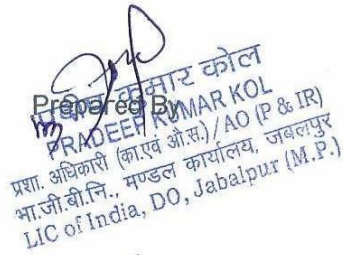 Prepared By
प्रदीप कुमार कोल
PRADEEP KUMAR KOL
प्रशा. अधिकारी (का.एवं औ.स.)/AO (P & IR)
भा.जी.बी.नि., मण्डल कार्यालय, जबलपुर
LIC of India, DO, Jabalpur (M.P.)